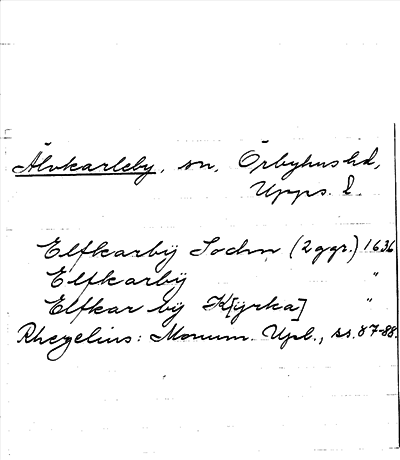 Älvkarleby, sn, Örbyhus hd,
Upps. l.
Elfkarbÿ Sochn (2 ggr.) 1636
Elfkarbÿ "
Elfkar bÿ K[yrka] "
Rhezelius: Monum. Upl., ss. 87-88.